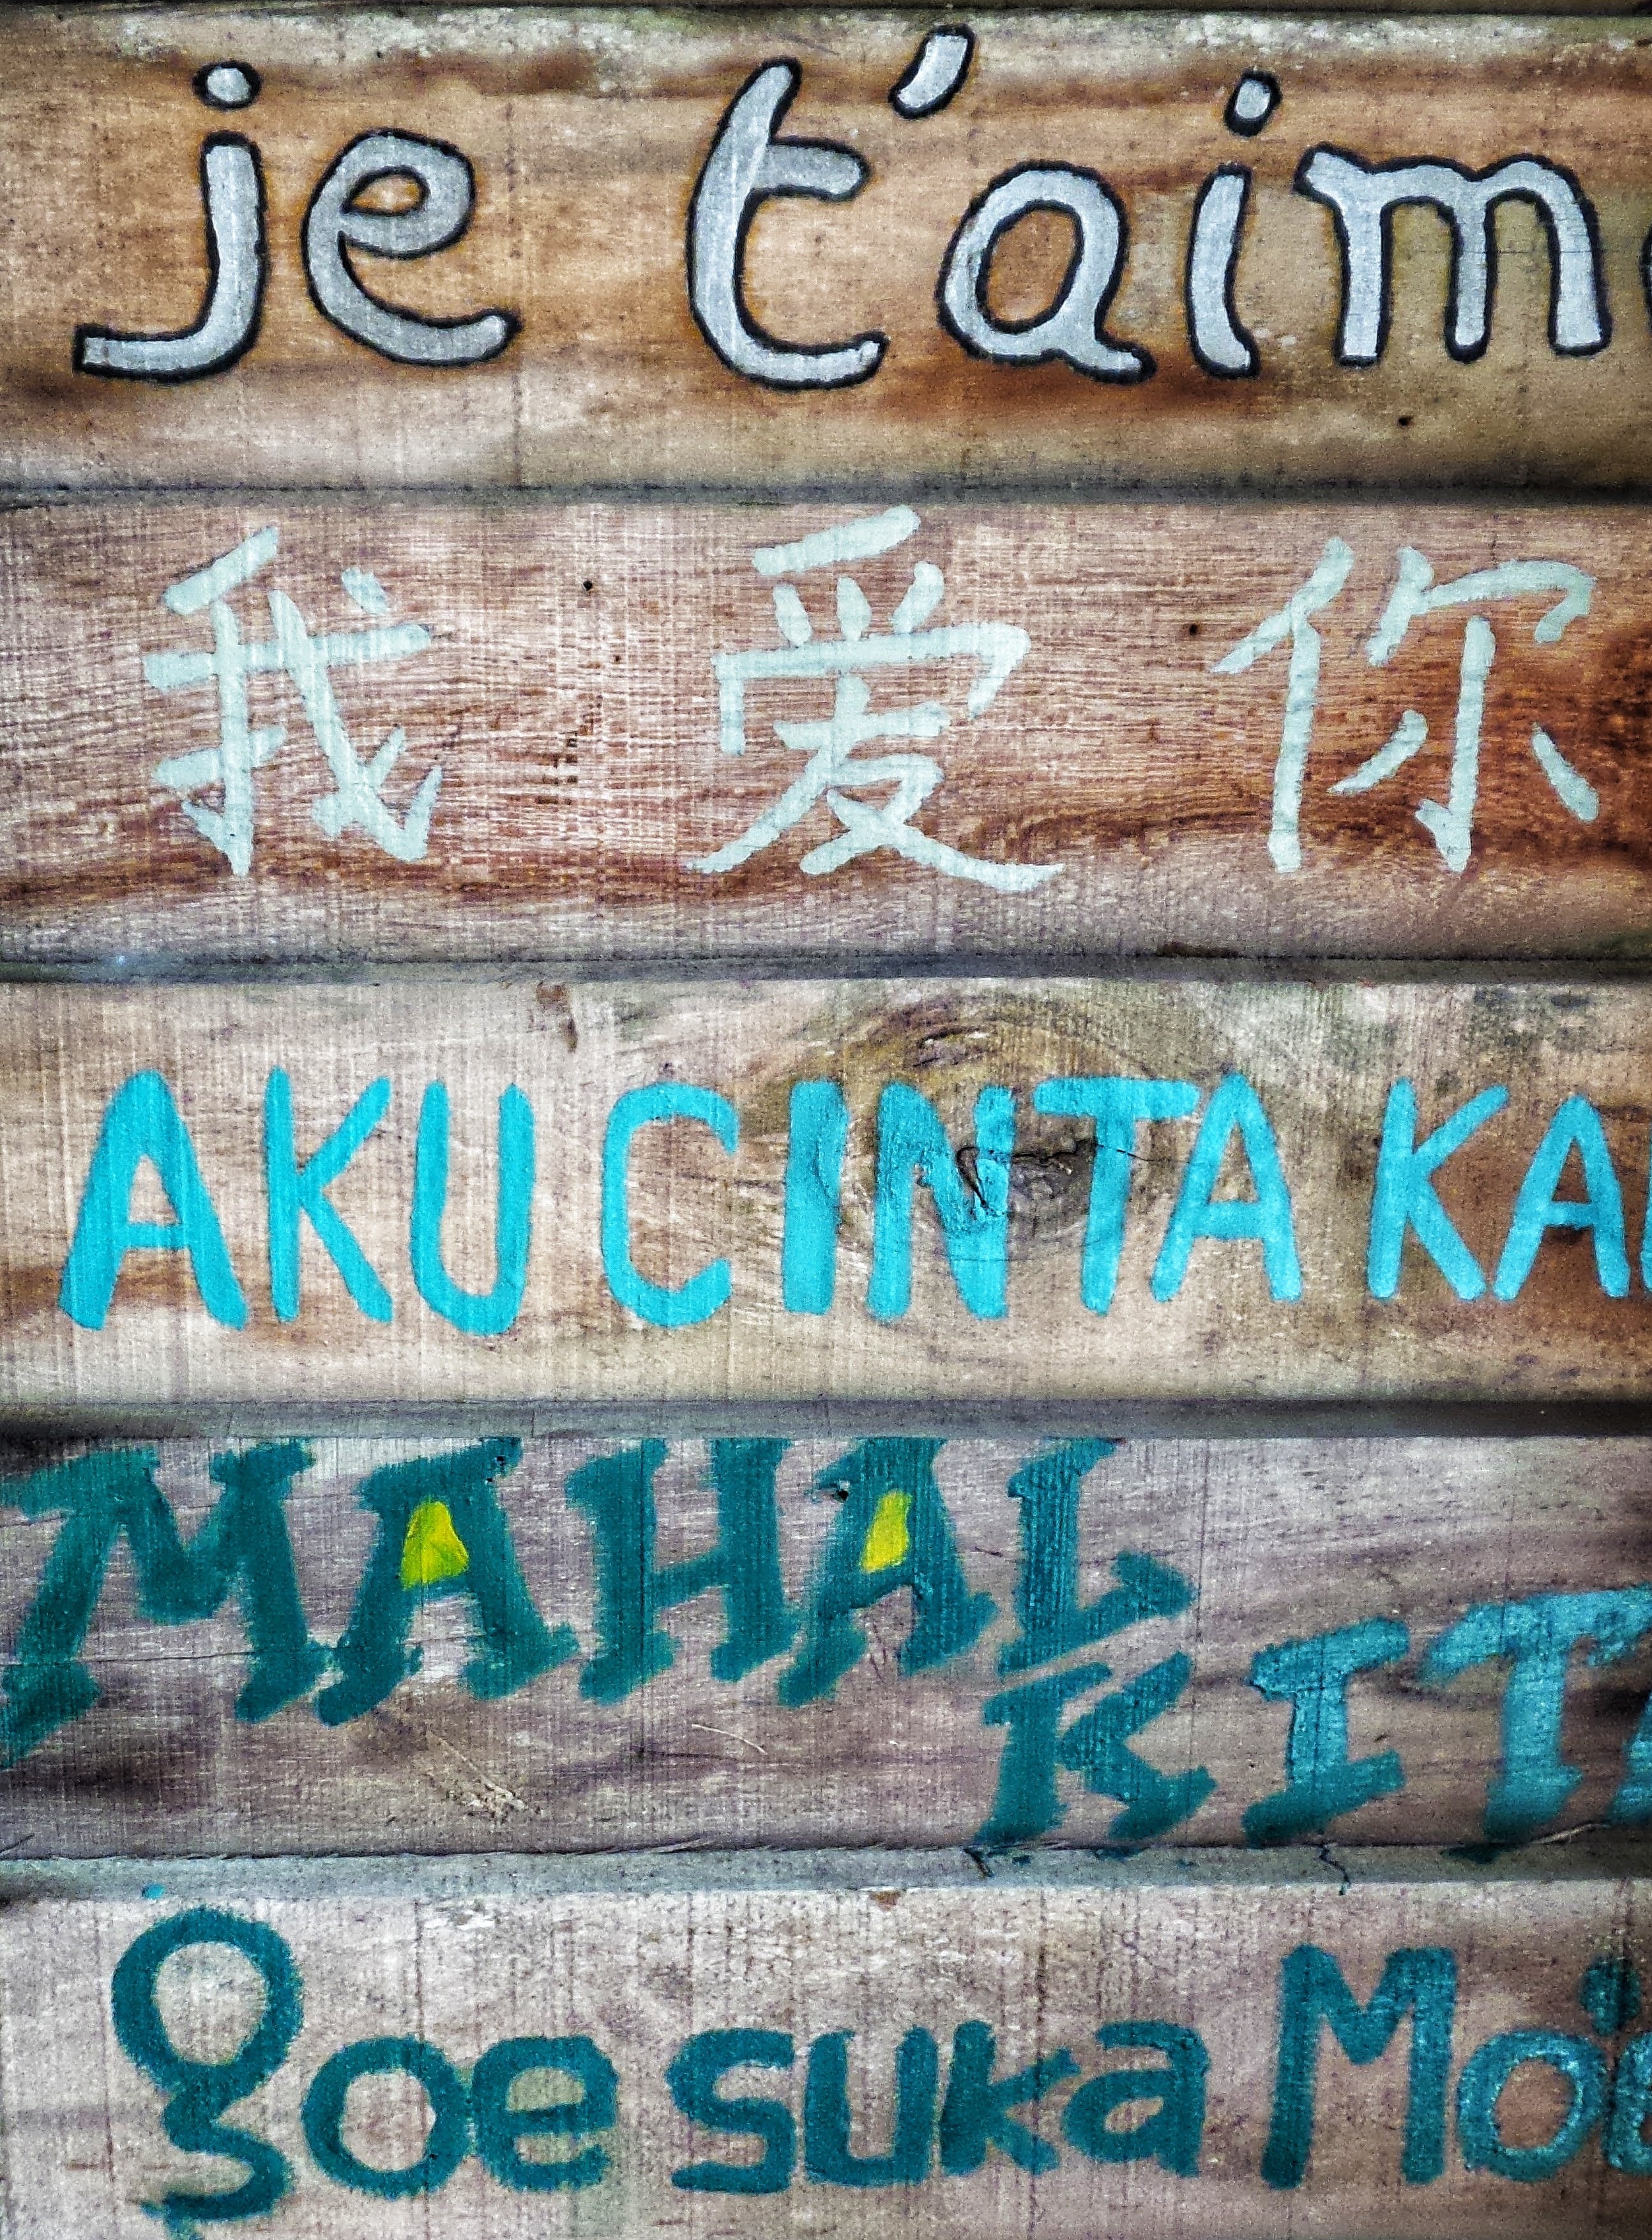 je t'aim
我爱你
AKU CINTA KA
MAHAL
KIT
goe suka Mo